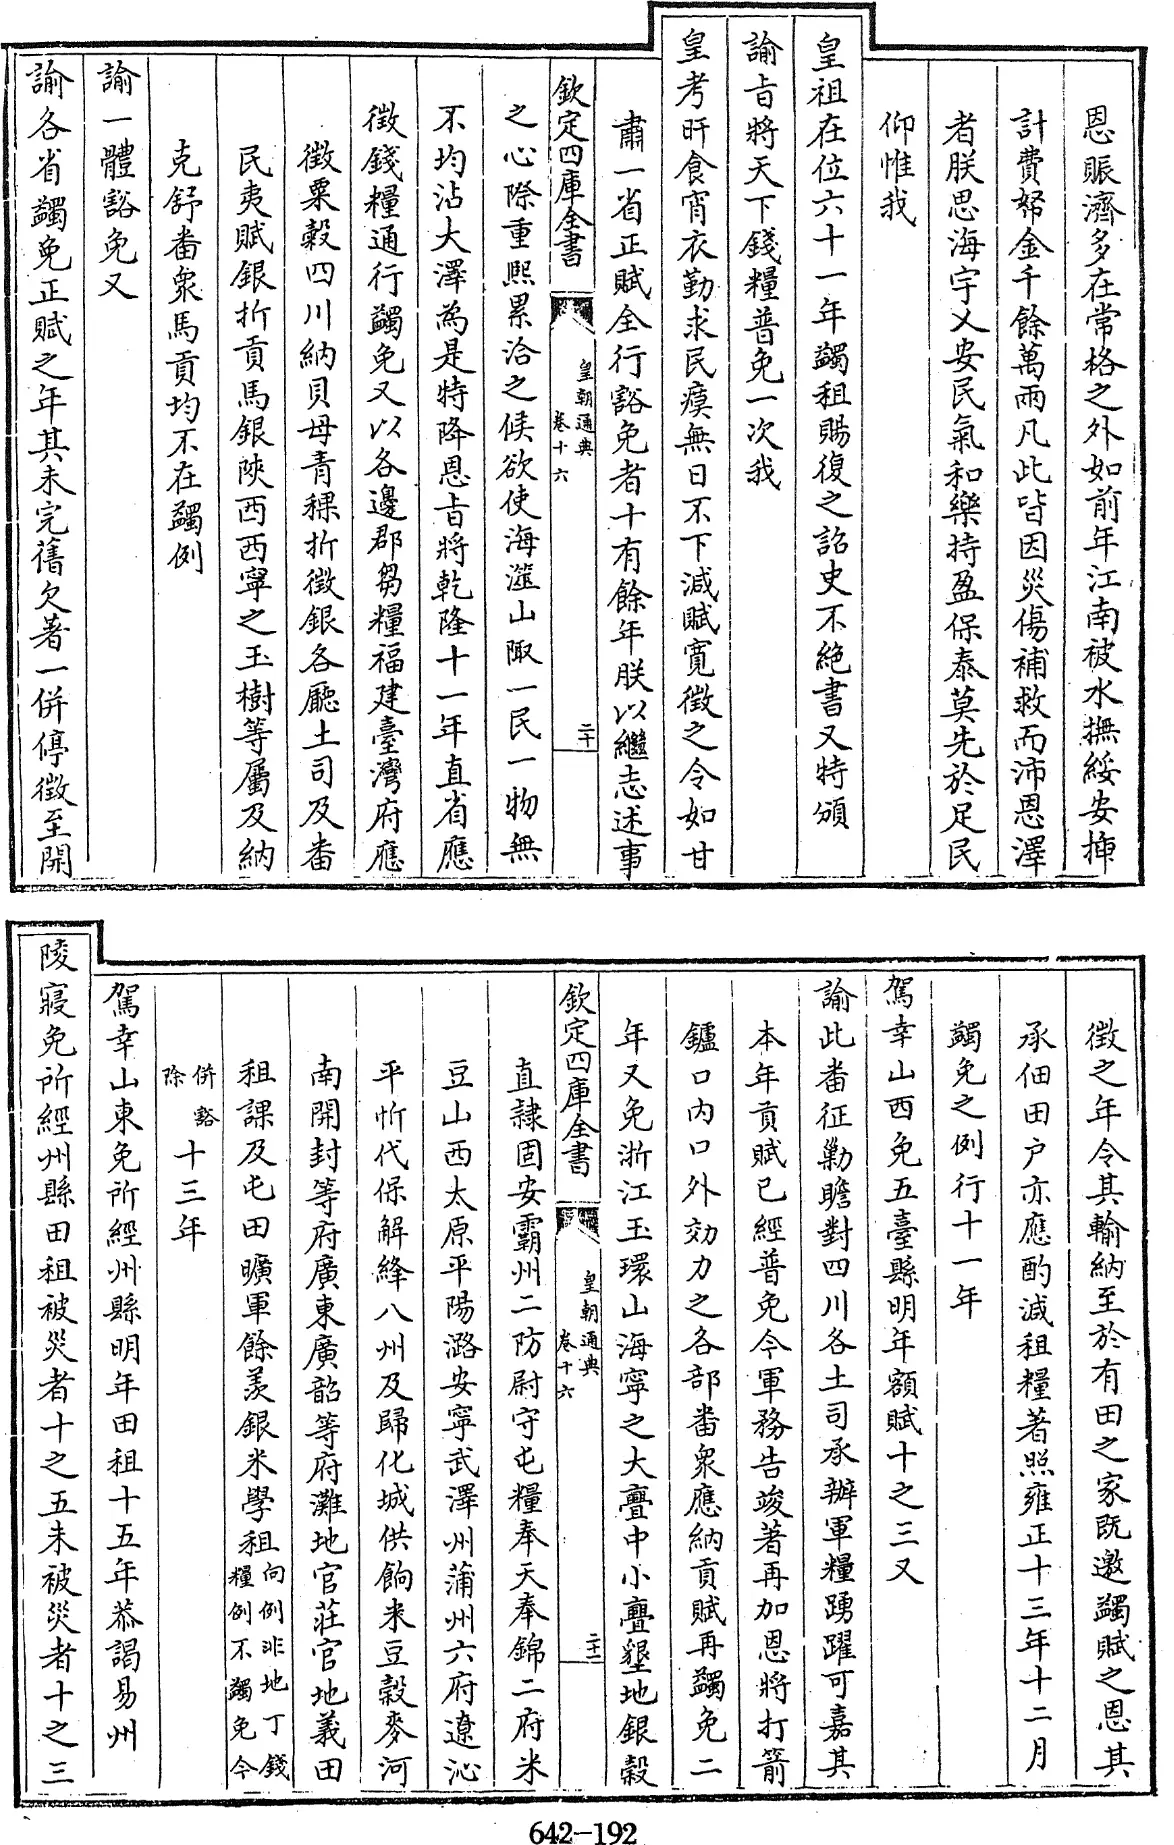 恩賑濟多在常格之外如前年江南被水撫綏安揷
計費帑金千餘萬兩凡此皆因災傷補救而沛恩澤
者朕思海宇乂安民氣和樂持盈保泰莫先於足民
仰惟我
皇祖在位六十一年蠲租賜復之詔史不絶書又特頒
諭旨將天下錢糧普免一次我
皇考旰食宵衣勤求民瘼無日不下減賦寛徵之令如甘
肅一省正賦全行豁免者十有餘年朕以繼志述事
欽定四庫全書
皇朝通典
卷十六
二十
之心際重熙累洽之候欲使海澨山陬一民一物無
不均沾大澤為是特降恩旨將乾隆十一年直省應
徵錢糧通行蠲免又以各邊郡芻糧福建臺灣府應
徵粟穀四川納貝母青稞折徵銀各廳土司及畨
民夷賦銀折貢馬銀陜西西寧之玉樹等屬及納
克舒畨衆馬貢均不在蠲例
諭一體豁免又
諭各省蠲免正賦之年其未完舊欠著一併停徵至開
徵之年令其輸納至於有田之家既邀蠲賦之恩其
承佃田户亦應酌減租糧著照雍正十三年十二月
蠲免之例行十一年
駕幸山西免五臺縣明年額賦十之三又
諭此畨征勦瞻對四川各土司承辦軍糧踴躍可嘉其
本年貢賦已經普免今軍務告竣著再加恩將打箭
鑪口内口外効力之各部畨衆應納貢賦再蠲免二
年又免浙江玉環山海寧之大亹中小亹墾地銀穀
欽定四庫全書
皇朝通典
卷十六
二十一
直隸固安霸州二防尉守屯糧奉天奉錦二府米
豆山西太原平陽潞安寧武澤州蒲州六府遼沁
平忻代保解絳八州及歸化城供餉米豆穀麥河
南開封等府廣東廣韶等府灘地官莊官地義田
租課及屯田曠軍餘羨銀米學租向例非地丁錢
糧例不蠲免今
併豁
除十三年
駕幸山東免所經州縣明年田租十五年恭謁易州
陵寢免所經州縣田租被災者十之五未被災者十之三
642-192